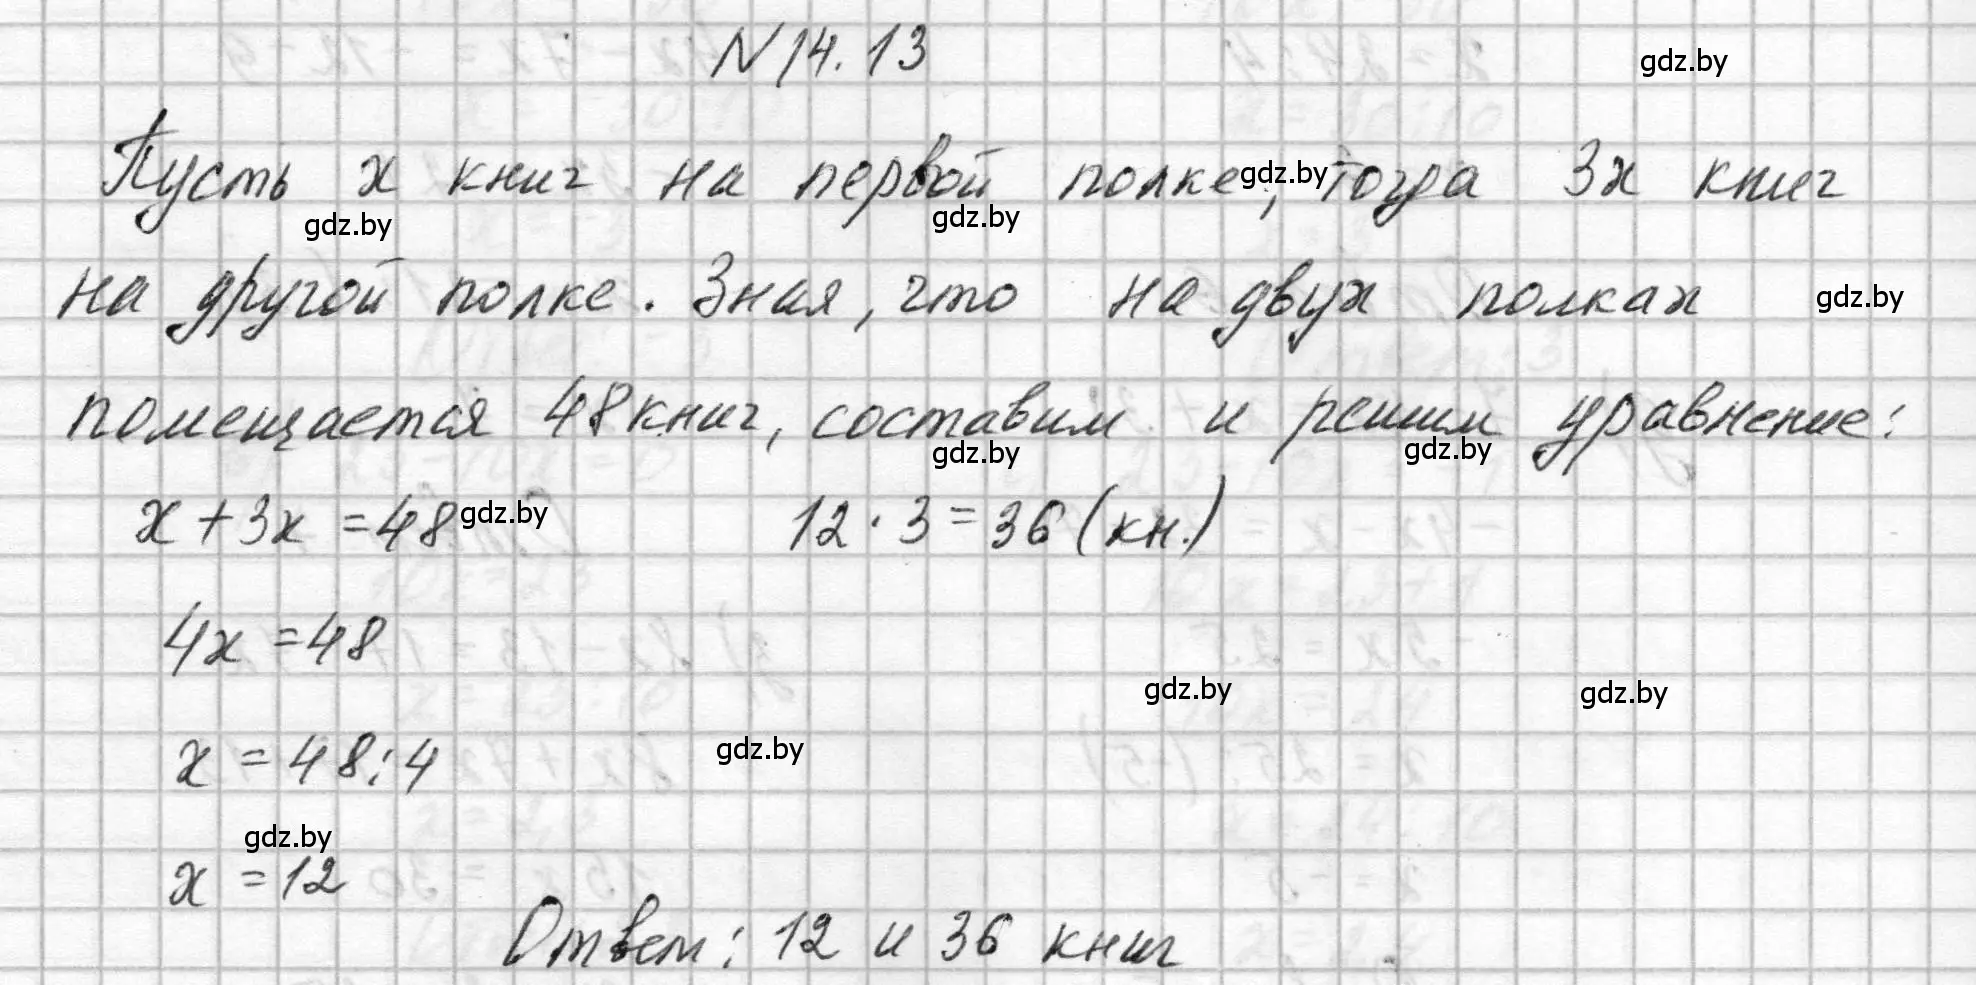 N 14.13
Пусть x книг на первой полке, тогда 3x книг
на другой полке. Зная, что на двух полках
помещается 48 книг, составим и решим уравнение:
x + 3x = 48 12 · 3 = 36 (кн.)
4x = 48
x = 48 : 4
x = 12
Ответ: 12 и 36 книг
gdz.by
gdz.by
gdz.by
gdz.by
gdz.by
gdz.by
gdz.by
gdz.by
gdz.by
gdz.by
gdz.by
gdz.by